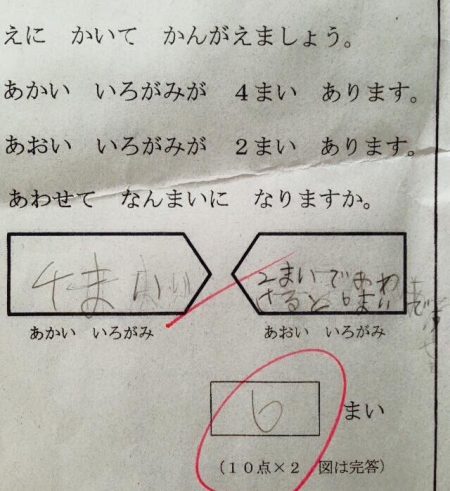 えに　かいて　かんがえましょう。
あかい　いろがみが　４まい　あります。
あおい　いろがみが　２まい　あります。
あわせて　なんまいに　なりますか。
4まい
2まいであわ
せると6まい
です
あかい　いろがみ
あおい　いろがみ
6 まい
（１０点×２　図は完答）